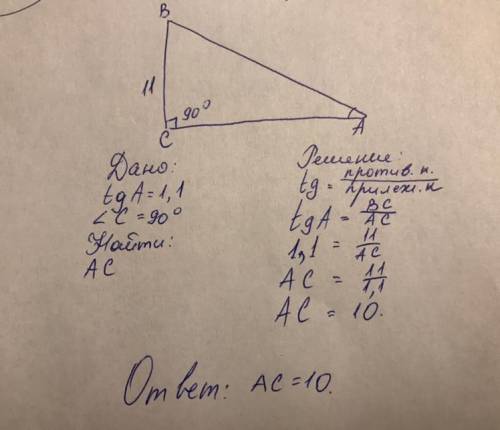 B
11
90°
C
A
Дано:
tg A = 1,1
∠C = 90°
Найти:
AC
Решение:
tg = против. к. / прилеж. к
tg A = BC / AC
1,1 = 11 / AC
AC = 11 / 1,1
AC = 10.
Ответ: AC = 10.